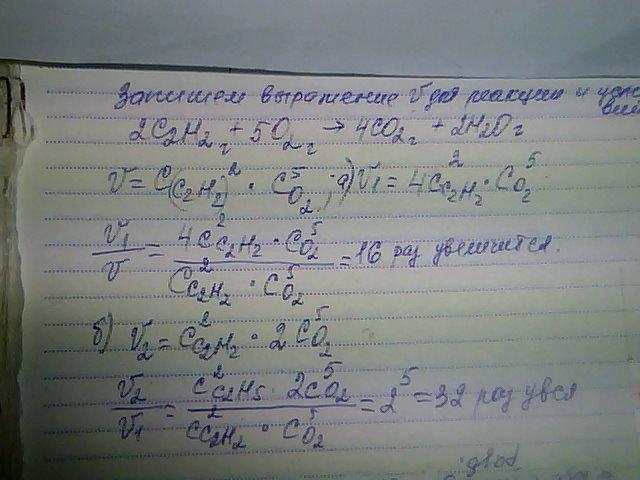 Запишем выражение V для реакции и
2C₂H₂ г + 5O₂ г → 4CO₂ г + 2H₂O г
V = C(C₂H₂)² · C⁵O₂; а) V₁ = 4C²C₂H₂ · C⁵O₂
V₁/V = 4C²C₂H₂ · C⁵O₂ / C²C₂H₂ · C⁵O₂ = 16 раз увеличится.
б) V₂ = C²C₂H₂ · 2C⁵O₂
V₂/V₁ = C²C₂H₅ · 2C⁵O₂ / C²C₂H₂ · C⁵O₂ = 2⁵ = 32 раз увся